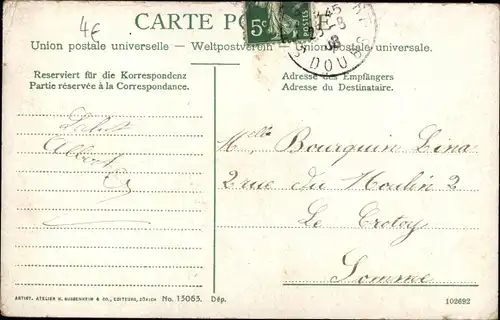 4€
CARTE PO
5c
Union postale universelle — Weltpostverein — Union postale universale.
DOUBS
Reserviert für die Korrespondenz
Partie réservée à la Correspondance.
Adresse des Empfängers
Adresse du Destinataire.
Salut
Albert
Melle Bourquin Lina
2 rue du Moulin 2
Le Crotoy
Somme
ARTIST. ATELIER H. GUGGENHEIM & CO., EDITEURS, ZÜRICH No. 13063. Dép.
102692